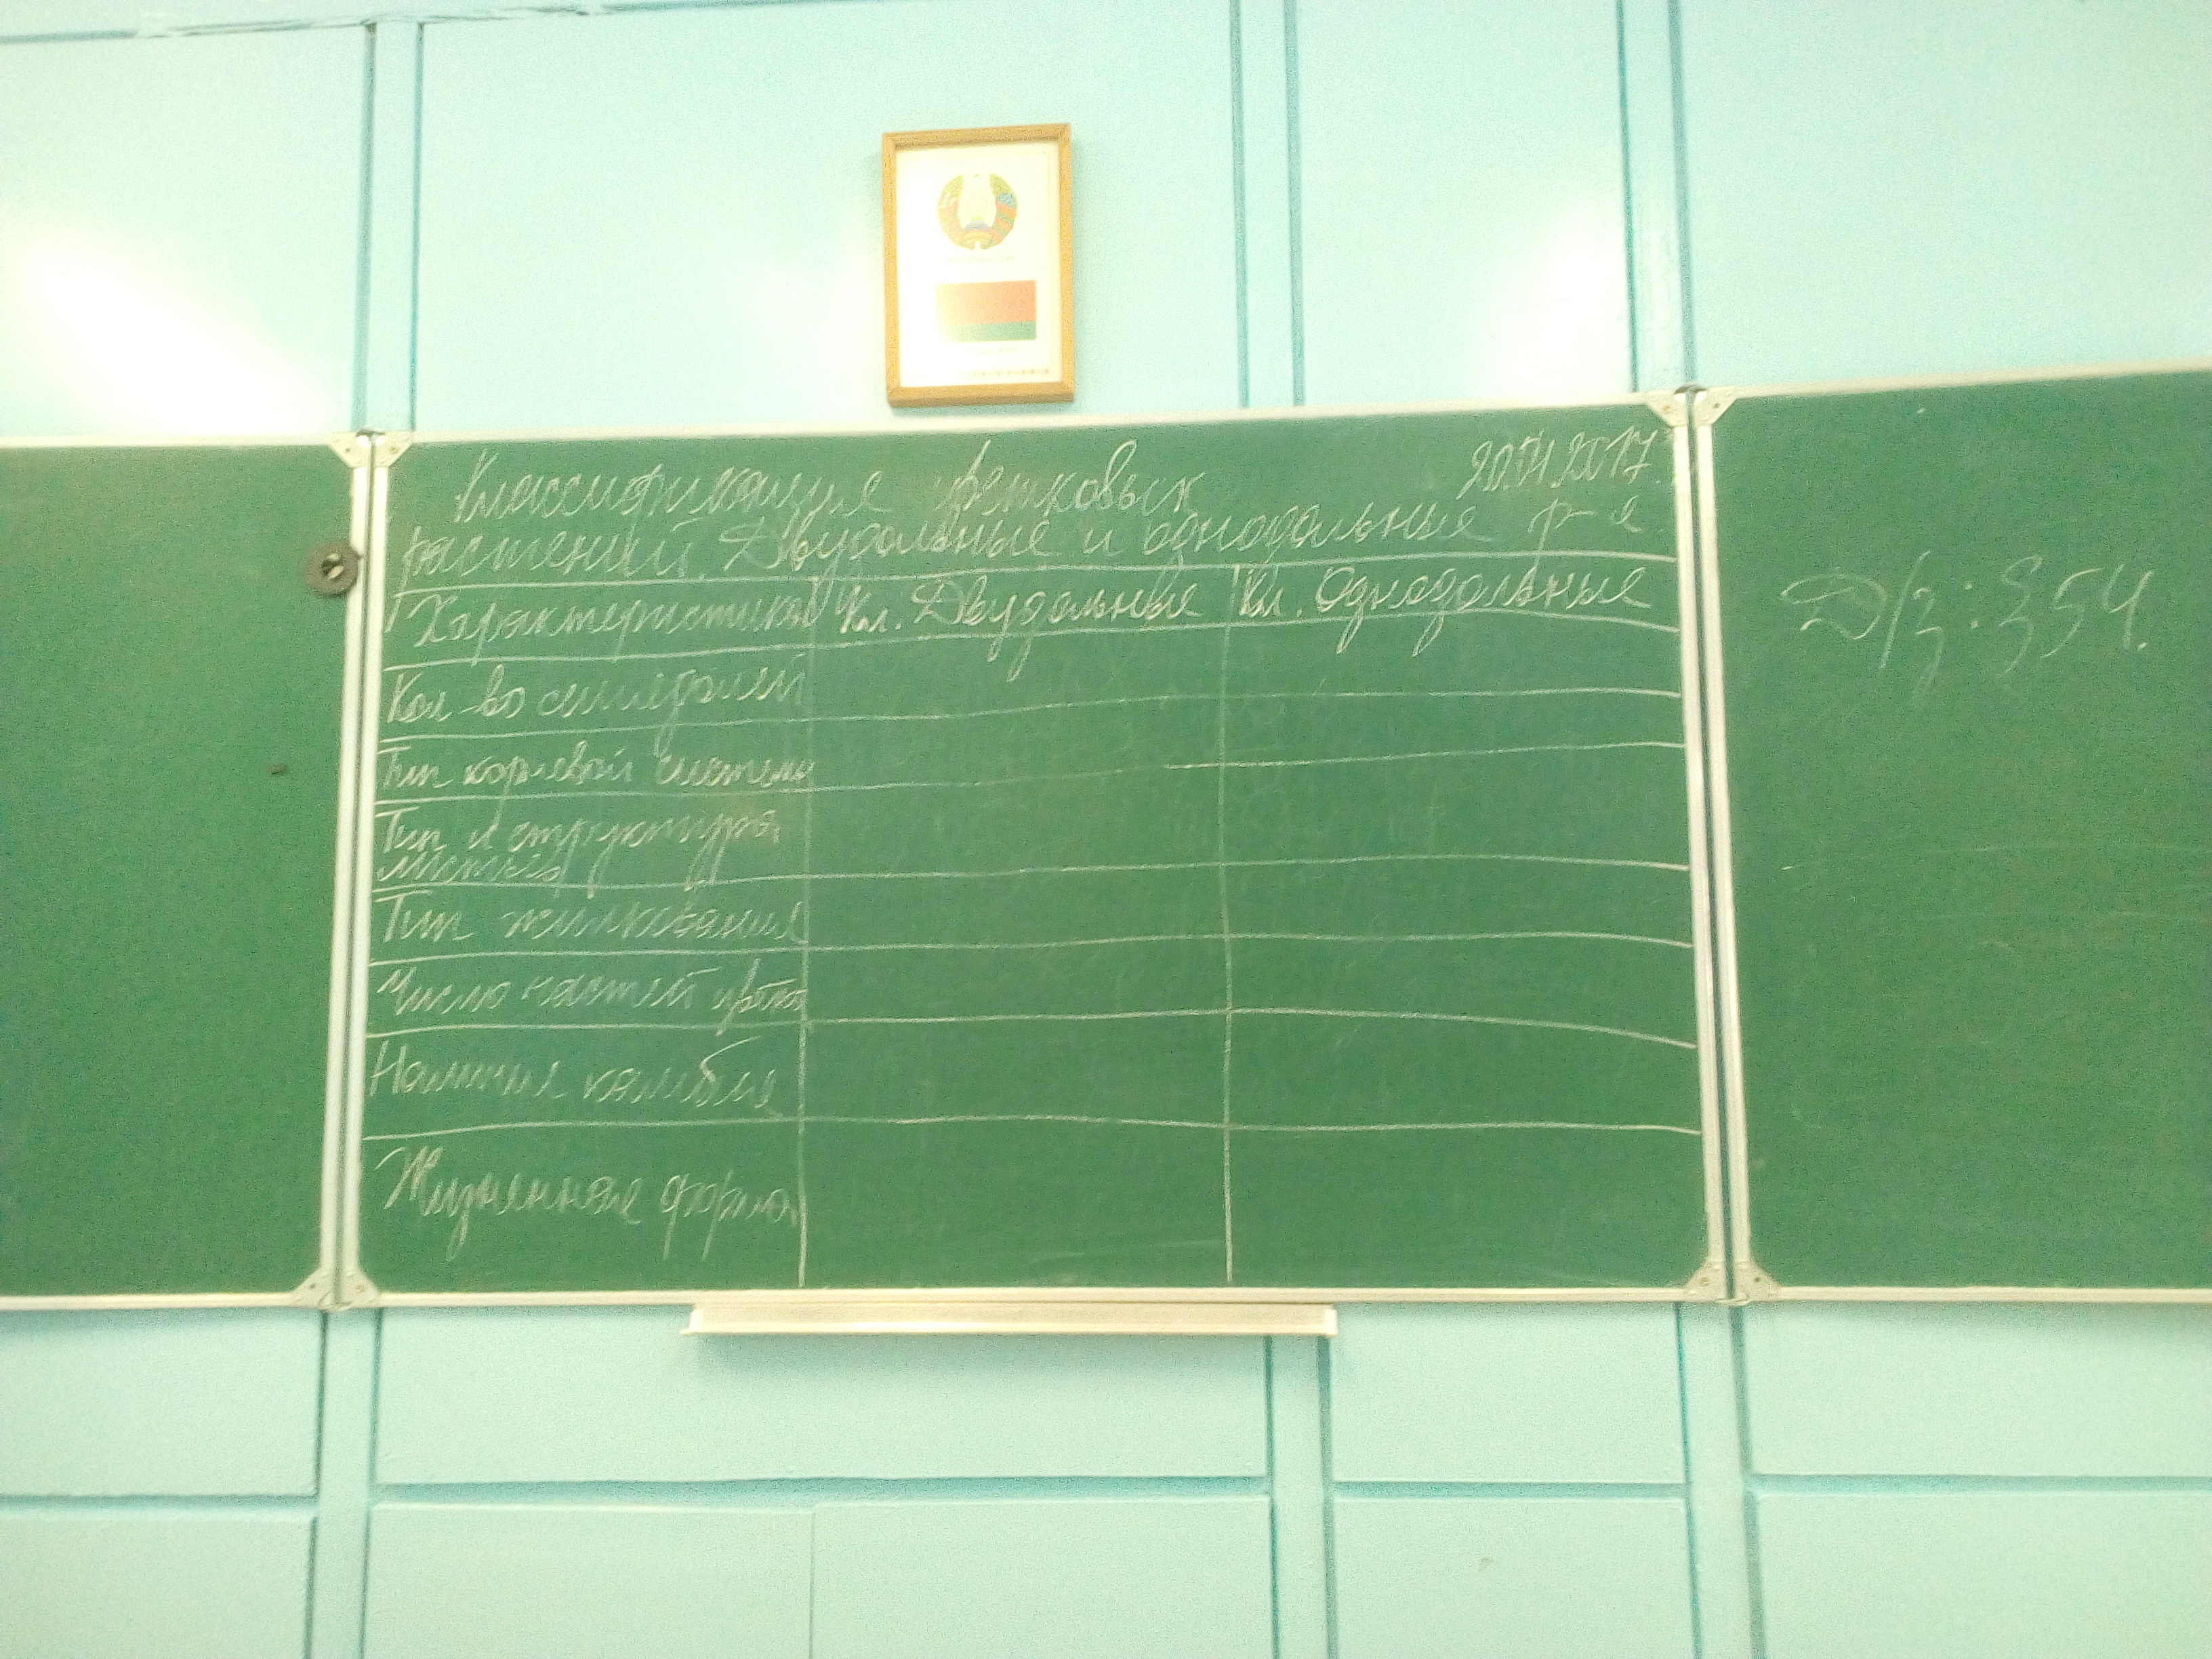 Классификация цветковых 20.04.2017.
растений. Двудольные и однодольные р-я
Характеристика Кл. Двудольные Кл. Однодольные
Кол-во семядолей
Тип корневой системы
Тип и структура
листьев
Тип жилкования
Число частей цветка
Наличие камбия
Жизненная форма
Д/з: § 54.